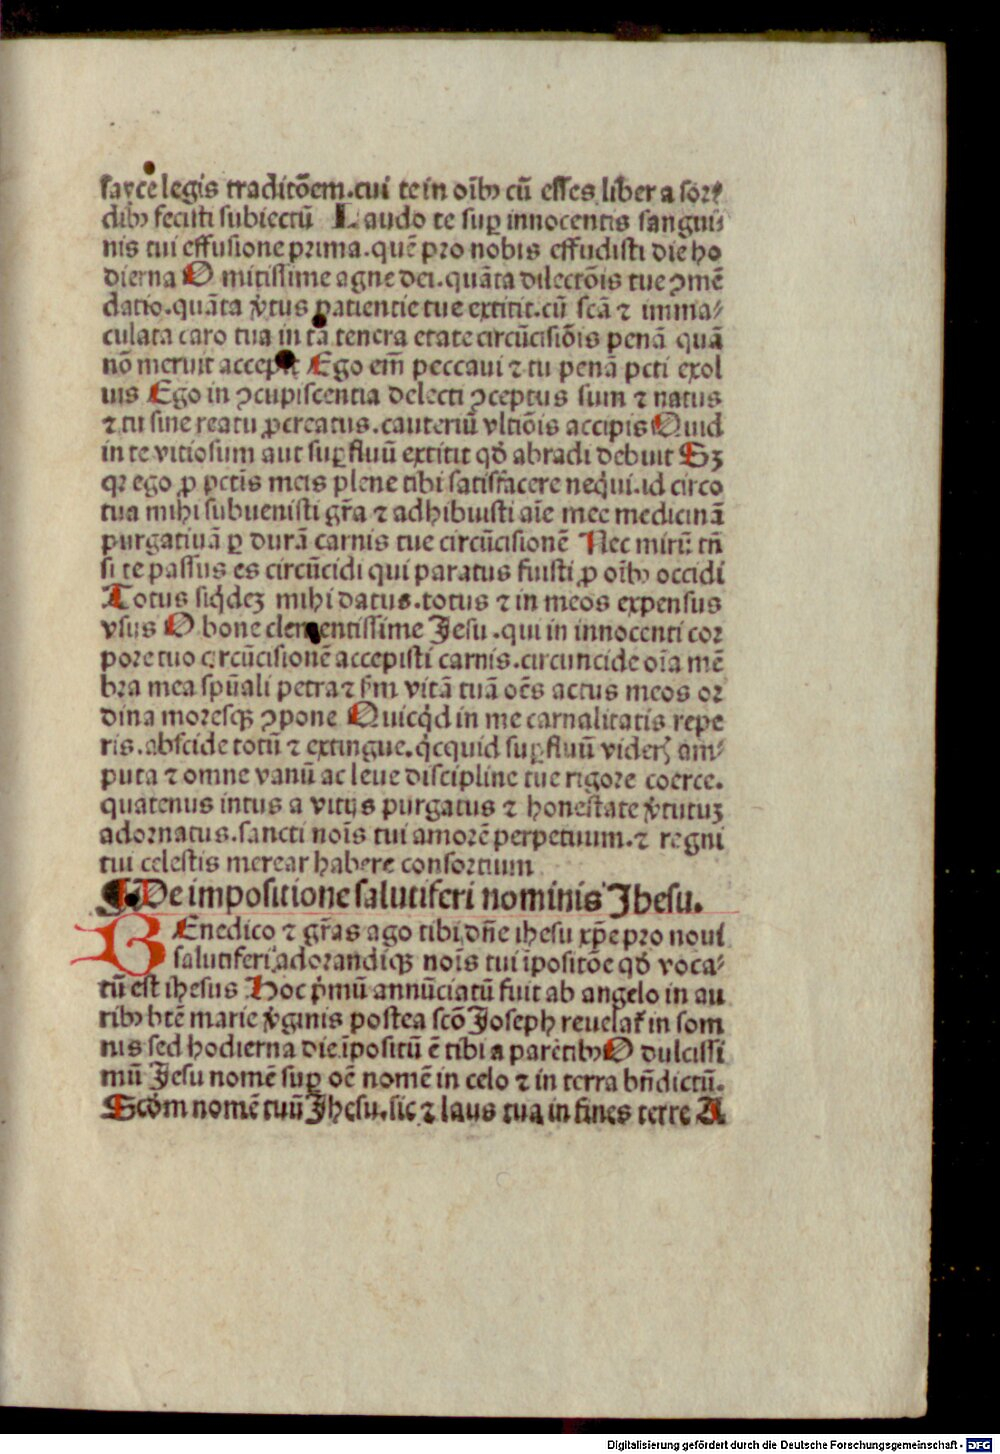 sayce legis traditōem.cui te in oīb⁹ cū esses liber a sor⸗
dib⁹ fecisti subiectū Laudo te suꝑ innocentis sangui⸗
nis tui effusione prima.quē pro nobis effudisti die ho
dierna O mitissime agne dei.quāta dilectōis tue ꝯmē
datio.quāta v̄tus patientie tue extitit.cū scā ⁊ imma⸗
culata caro tua in tā tenera etate circūcisiōis penā quā
nō meruit accepit Ego em̄ peccaui ⁊ tu penā pcti exol
uis Ego in ꝯcupiscentia delecti ꝯceptus sum ⁊ natus
⁊ tu sine reatu ꝓcreatus.cauteriū vltiōis accipis Quid
in te vitiosum aut suꝑfluū extitit qđ abradi debuit Sꝫ
qꝛ ego ꝓ pctīs meis plene tibi satisfacere neq̇ui.id circo
tua mihi subuenisti gr̄a ⁊ adhibuisti aīe mee medicinā
purgatiuā ꝑ durā carnis tue circūcisionē Nec mirū tn̄
si te passus es circūcidi qui paratus fuisti ꝓ oīb⁹ occidi
Totus siq̇dēꝫ mihi datus.totus ⁊ in meos expensus
vsus O bone clementissime Jesu.qui in innocenti cor
pore tuo circūcisionē accepisti carnis.circuncide oīa mē
bra mea spūali petra ⁊ fm̄ vitā tuā oēs actus meos or
dina moresqꝫ ꝯpone Quicq̇d in me carnalitatis repe
ris.abscide totū ⁊ extingue.q̇cquid suꝑfluū viderꝭ am⸗
puta ⁊ omne vanū ac leue discipline tue rigore coerce.
quatenus intus a vitijs purgatus ⁊ honestate v̄tutuꝫ
adornatus.sancti noīs tui amorē perpetuum.⁊ regni
tui celestis merear habere consortium
¶ De impositione salutiferi nominis Jhesu.
BEnedico ⁊ gr̄as ago tibi dn̄e ihesu xp̄e pro noui
salutiferi adorandiqꝫ noīs tui īpositōe qđ voca⸗
tū est ihesus Hoc pͥmū annūciatū fuit ab angelo in au
rib⁹ btē marie v̄ginis postea scō Joseph reuelat̄ in som
nis sed hodierna die īpositū ē tibi a parētib⁹ O dulcissi
mū Jesu nomē suꝑ oē nomē in celo ⁊ in terra bn̄dictū.
Scd̄m nomē tuū Jhesu.sic ⁊ laus tua in fines terre A
Digitalisierung gefördert durch die Deutsche Forschungsgemeinschaft - DFG